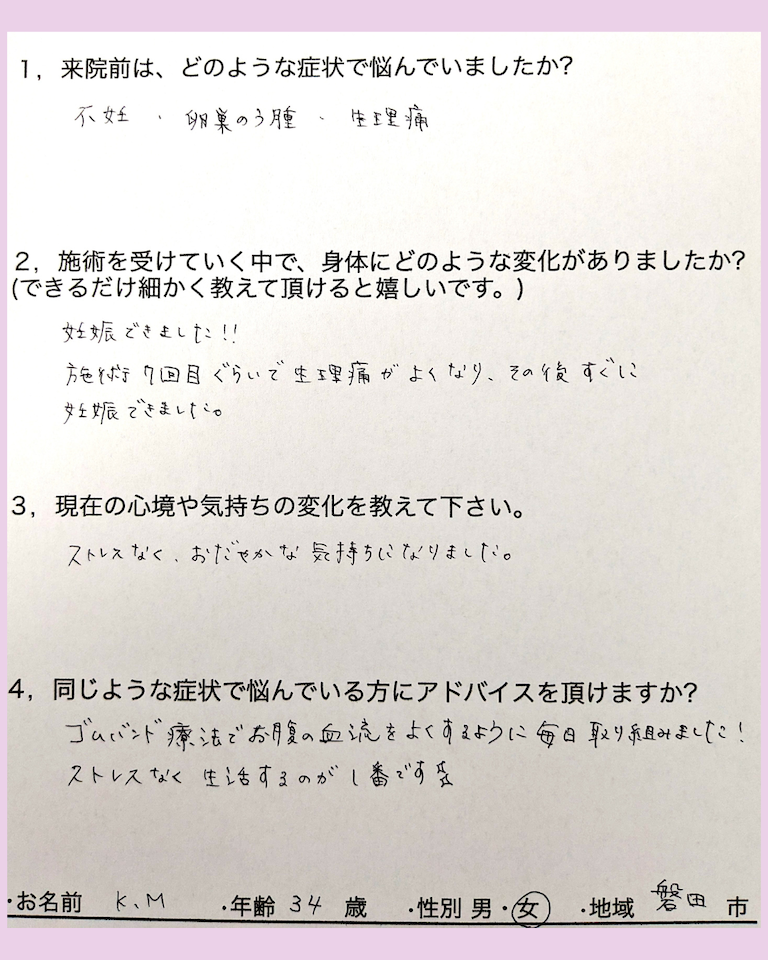 1, 来院前は、どのような症状で悩んでいましたか?
不妊 ・ 卵巣のう腫 ・ 生理痛
2, 施術を受けていく中で、身体にどのような変化がありましたか?
(できるだけ細かく教えて頂けると嬉しいです。)
妊娠できました!!
施術7回目ぐらいで生理痛がよくなり、その後すぐに
妊娠できました。
3, 現在の心境や気持ちの変化を教えて下さい。
ストレスなく、おだやかな気持ちになりました。
4, 同じような症状で悩んでいる方にアドバイスを頂けますか?
ゴムバンド療法でお腹の血流をよくするように毎日取り組みました!
ストレスなく生活するのが1番です
・お名前 K.M ・年齢 34 歳 ・性別 男・女 ・地域 磐田 市